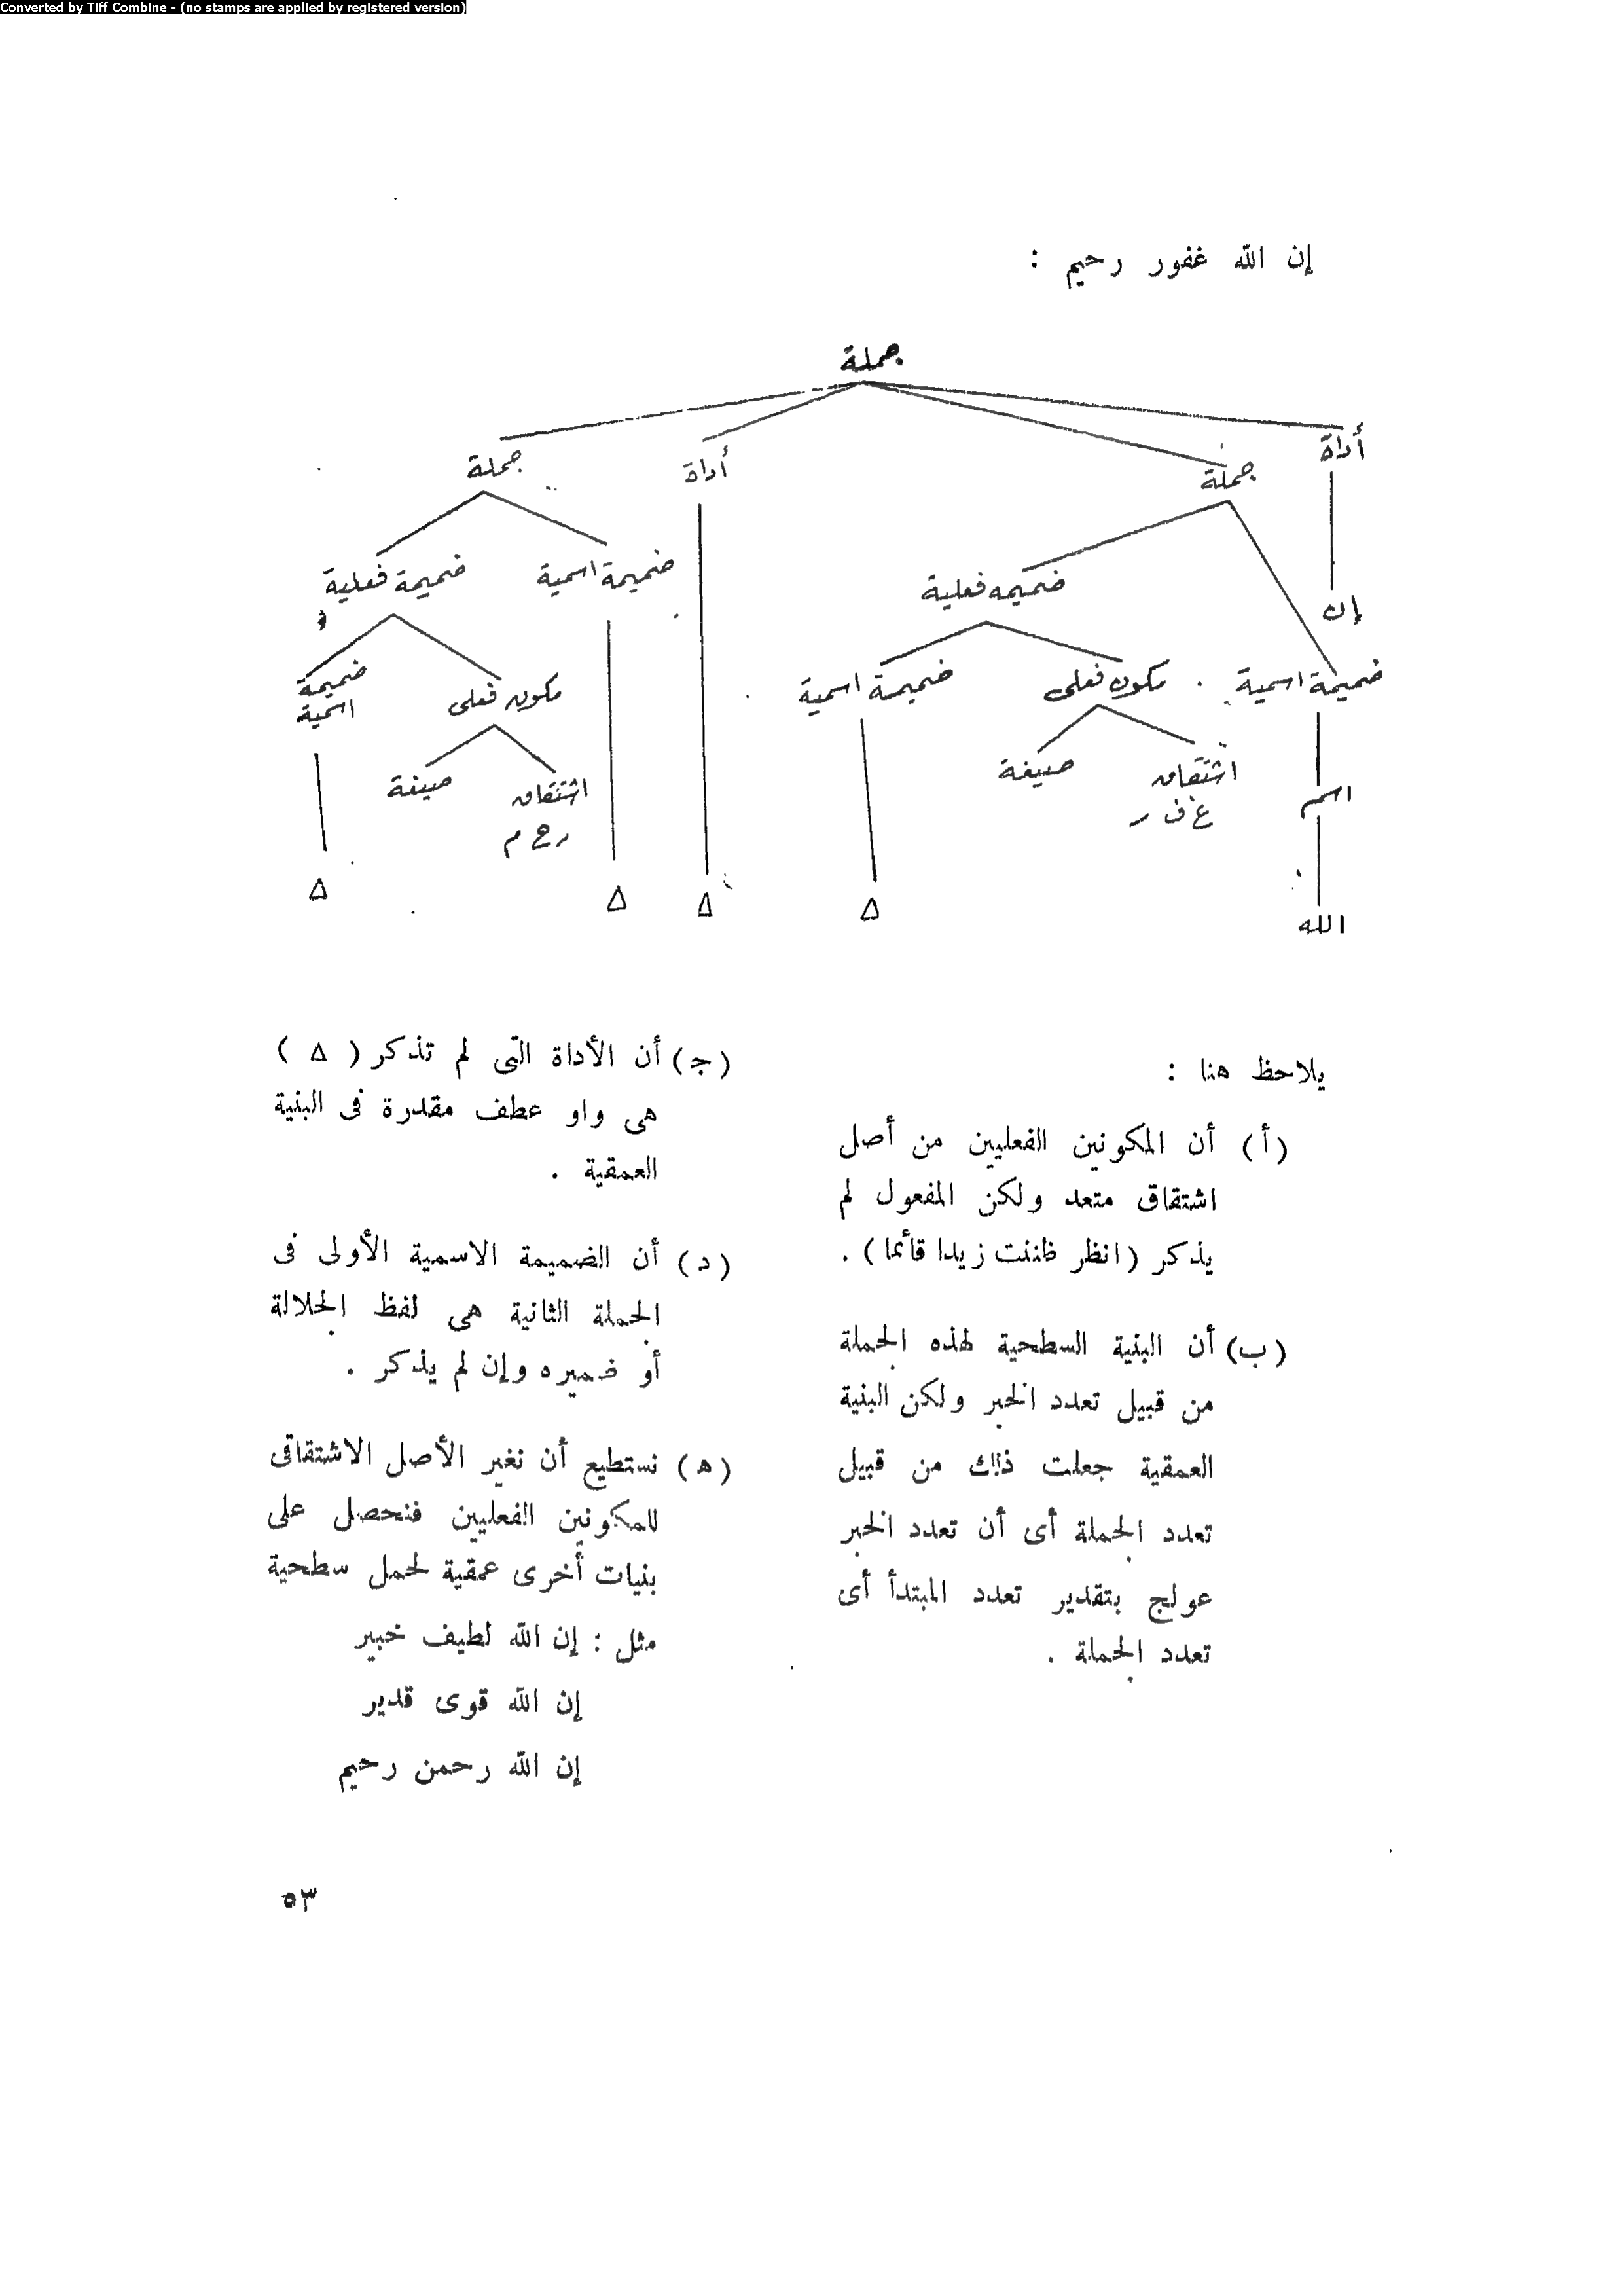 Converted by Tiff Combine - (no stamps are applied by registered version)
إن الله غفور رحيم :
جملة
أداة جملة أداة جملة
إن ضميمة فعلية ضميمة اسمية ضميمة فعلية
ضميمة اسمية مكون فعلى ضميمة اسمية مكون فعلى ضميمة
اسمية
اسم اشتقاق صيغة اشتقاق صيغة
غ ف ر ر ح م
الله Δ Δ Δ Δ
يلاحظ هنا :
(أ) أن المكونين الفعليين من أصل
اشتقاق متعد ولكن المفعول لم
يذكر (انظر ظننت زيدا قائما) .
(ب) أن البنية السطحية لهذه الجملة
من قبيل تعدد الخبر ولكن البنية
العمقية جعلت ذلك من قبيل
تعدد الجملة أى أن تعدد الخبر
عولج بتقدير تعدد المبتدأ أى
تعدد الجملة .
(ج) أن الأداة التى لم تذكر ( Δ )
هى واو عطف مقدرة فى البنية
العمقية .
(د) أن الضميمة الاسمية الأولى فى
الجملة الثانية هى لفظ الجلالة
أو ضميره وإن لم يذكر .
(ه) نستطيع أن نغير الأصل الاشتقاقى
للمكونين الفعليين فنحصل على
بنيات أخرى عمقية لجمل سطحية
مثل : إن الله لطيف خبير
إن الله قوى قدير
إن الله رحمن رحيم
٥٣